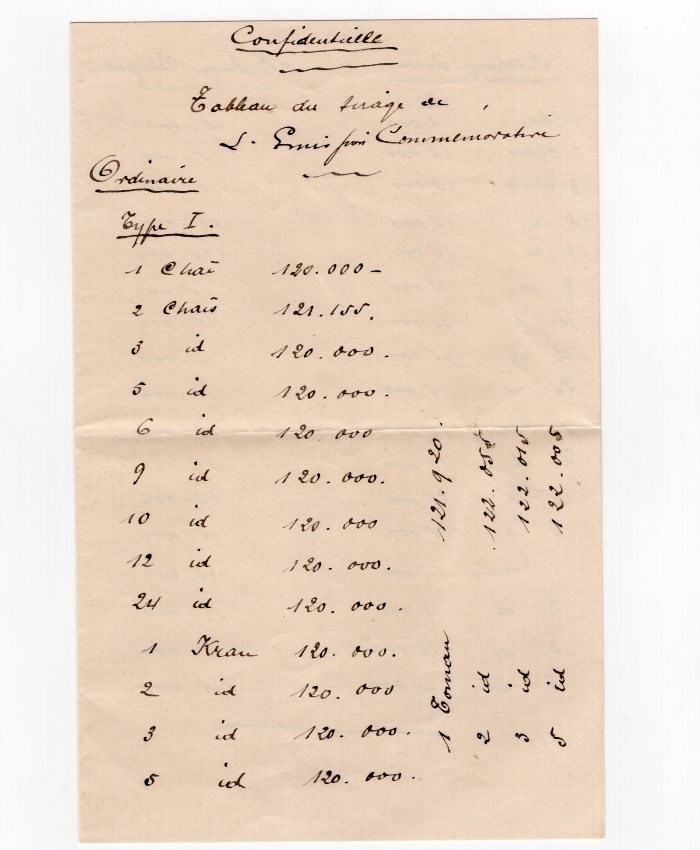 Confidentielle
Tableau du tirage de
L. Emission Commémorative
Ordinaire
Type I.
1 Chaï 120.000-
2 Chaïs 121.155.
3 id 120.000.
5 id 120.000.
6 id 120.000
9 id 120.000.
10 id 120.000
12 id 120.000.
24 id 120.000.
1 Kran 120.000.
2 id 120.000
3 id 120.000.
5 id 120.000.
1 Toman 121.920.
2 id 122.055
3 id 122.015
5 id 122.005